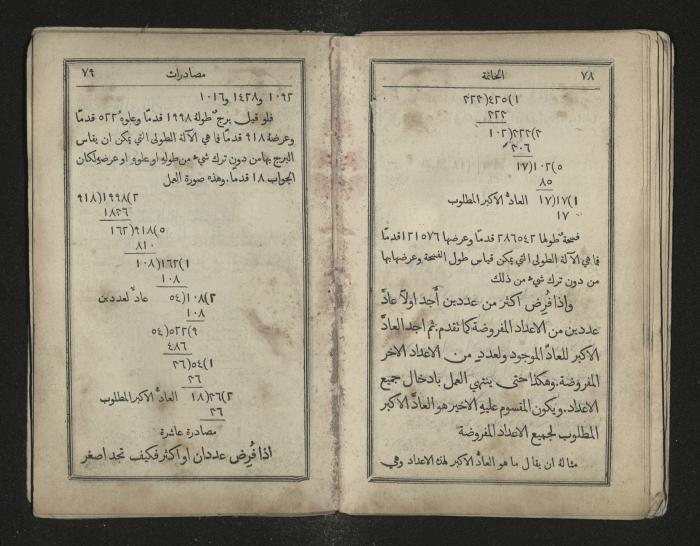 ٧٨
الخاتمة
١)٤٢٥(٣٢٣
٣٢٣
٣)٣٢٣(١٠٢
٣٠٦
٥)١٠٢(١٧
٨٥
١)١٧(١٧ العادّ الاكبر المطلوب
١٧
فسحة طولها ٢٨٦٥٤٢ قدمًا وعرضها ١٢١٥٧٦ قدمًا
فما هي الآلة الطولى التي يمكن قياس طول الفسحة وعرضها بها
من دون ترك شيء من ذلك
واذا فُرِض اكثر من عددين أَجد اولاً عادَّ
عددين من الاعداد المفروضة كما تقدم. ثم اجد العادَّ
الاكبر للعادّ الموجود ولعددٍ من الاعداد الاخر
المفروضة. وهكذا حتى ينتهي العمل بادخال جميع
الاعداد. ويكون المقسوم عليهِ الاخير هو العادَّ الاكبر
المطلوب لجميع الاعداد المفروضة
مثالهُ ان يقال ما هو العادُّ الاكبر لهذه الاعداد وهي
مصادرات
٧٩
١٠٩٢ و١٤٢٨ و١٠١٦
فلو قيل برجٌ طولهُ ١٩٩٨ قدمًا وعلوهُ ٥٢٢ قدمًا
وعرضهُ ٩١٨ قدمًا فما هي الآلة الطولى التي يمكن ان يقاس
البرج بها من دون ترك شيء من طولهِ او علوهِ او عرضهِ لكان
الجواب ١٨ قدمًا. وهذه صورة العمل
٢)١٩٩٨(٩١٨
١٨٣٦
٥)٩١٨(١٦٢
٨١٠
١)١٦٢(١٠٨
١٠٨
٢)١٠٨(٥٤ عادٌّ لعددين
١٠٨
٩)٥٢٢(٥٤
٤٨٦
١)٥٤(٣٦
٣٦
٢)٣٦(١٨ العادُّ الاكبر المطلوب
٣٦
مصادرة عاشرة
اذا فُرِض عددان او اكثر فكيف تجد اصغر